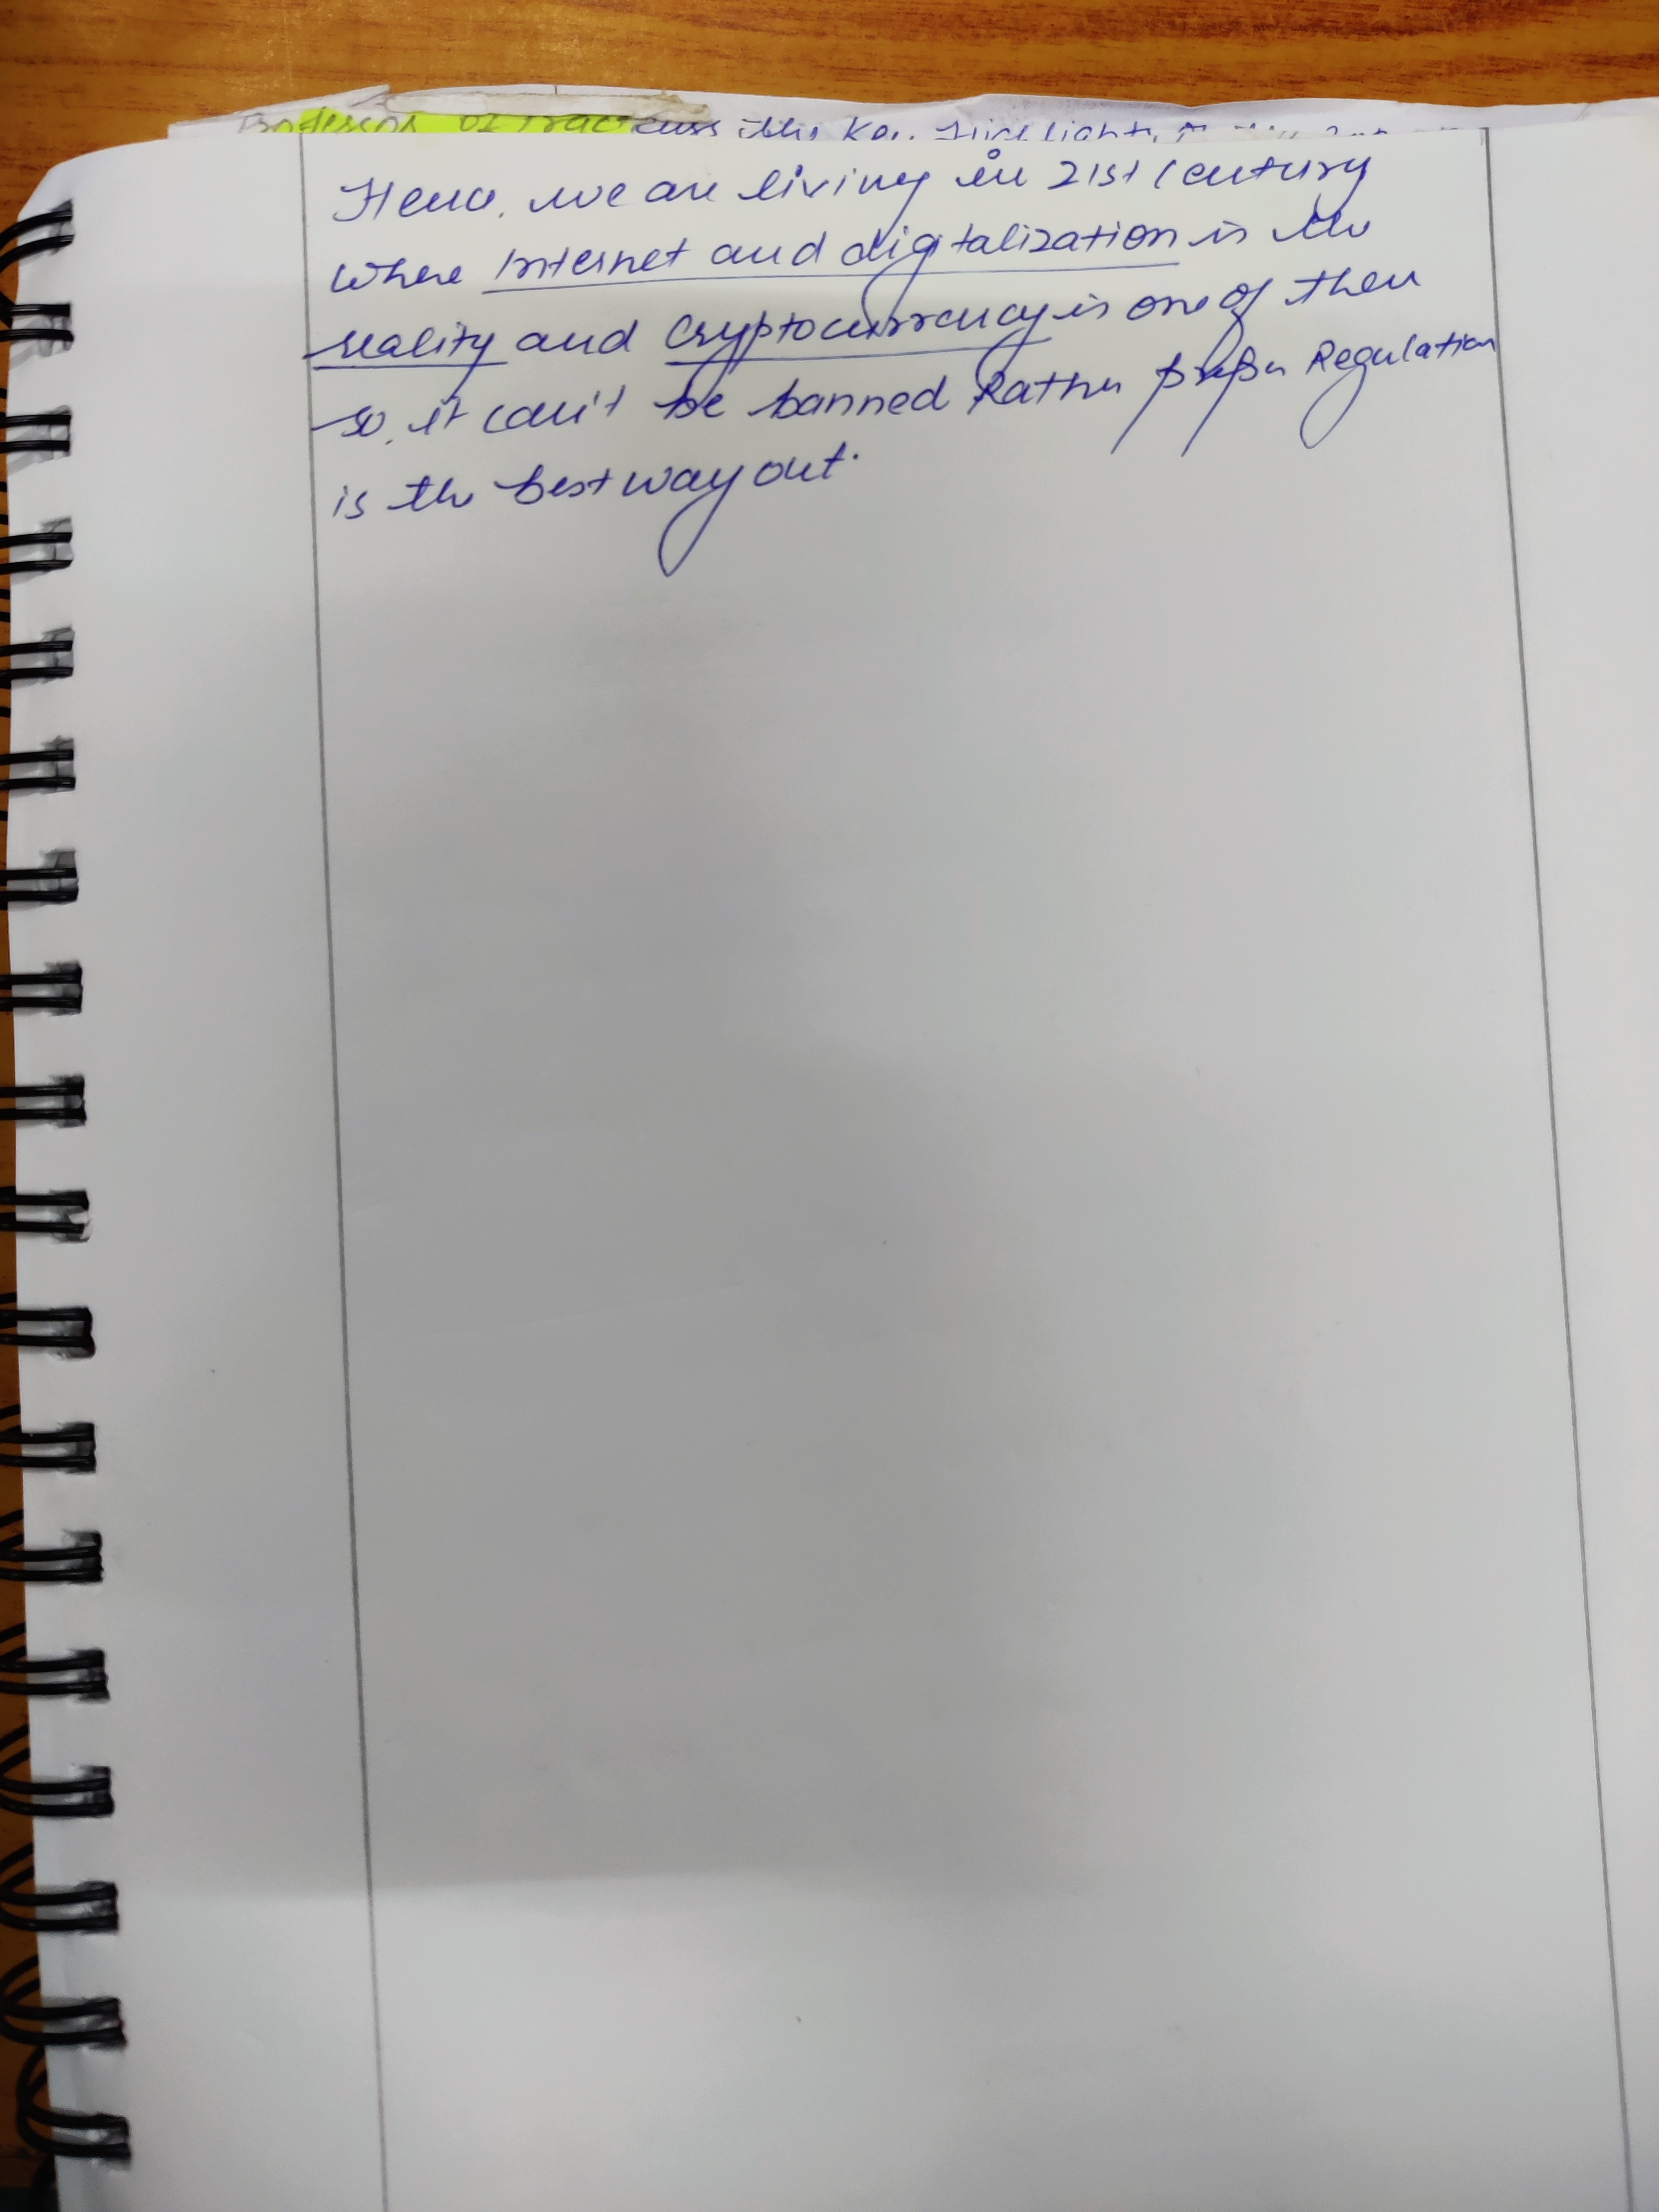 Professor of Pract
Hence, we are living in 21st century
where Internet and digitalization is the
reality and Cryptocurrency is one of them
so, it can't be banned Rather proper Regulation
is the best way out.